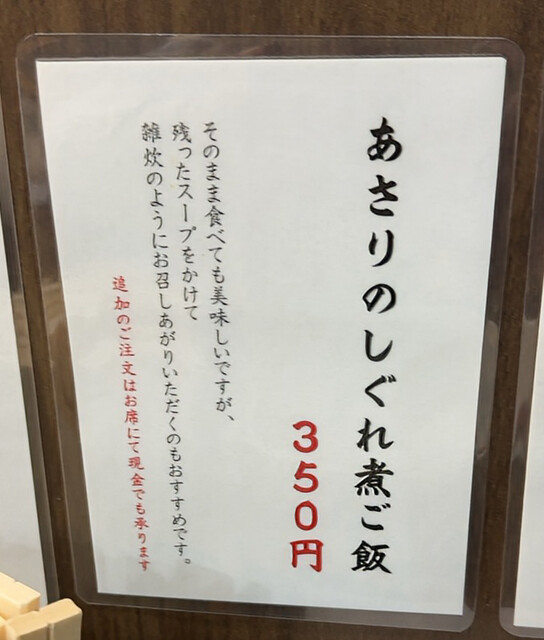 あさりのしぐれ煮ご飯
350円
そのまま食べても美味しいですが、
残ったスープをかけて
雑炊のようにお召しあがりいただくのもおすすめです。
追加のご注文はお席にて現金でも承ります